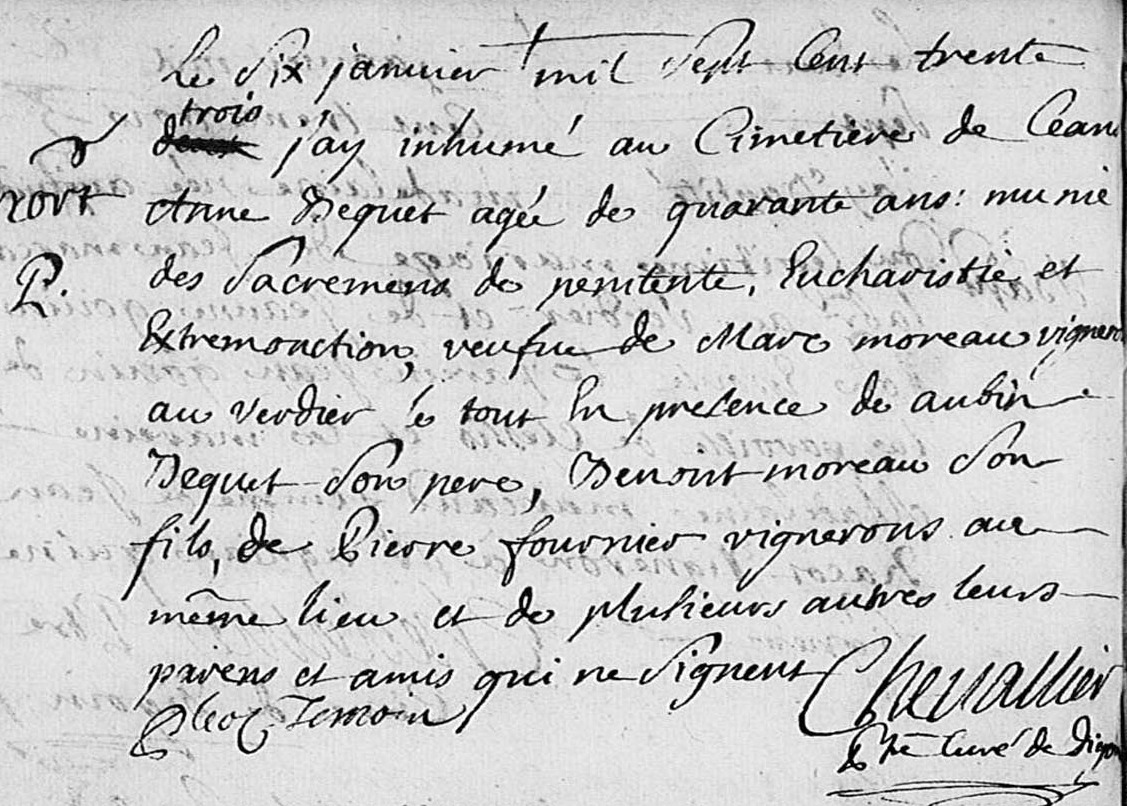 Le Six janvier mil Sept Cent trente
trois
deux jay inhumé au Cimetiere de Cean
mort
Anne Dequet agée de quarante ans: munie
P.
des Sacremens de penitente, Eucharistie et
Extremonction, veufue de Marc moreau vigneron
au verdier le tout En presence de aubin
Dequet Son pere, Benoit moreau Son
fils, de Pierre fournier vignerons au
même lieu et de plusieurs autres leurs
parens et amis qui ne Signent
Chevallier
curé de